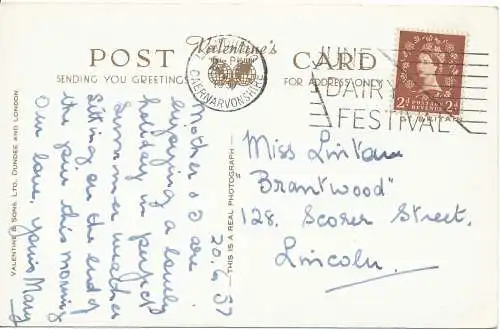 POST Valentine's CARD
SENDING YOU GREETINGS FOR ADDRESS ONLY
CAERNARVONSHIRE
JUNE
DAIRY
FESTIVAL
POSTAGE REVENUE
2d 2d
20.6.57
Mother & I are
enjoying a lovely
holiday in perfect
Summer weather
Sitting on the end of
the pier this morning
Our love, yours Mary
THIS IS A REAL PHOTOGRAPH
VALENTINE & SONS, LTD., DUNDEE AND LONDON
Miss
"Brantwood"
128. Scorer Street,
Lincoln.